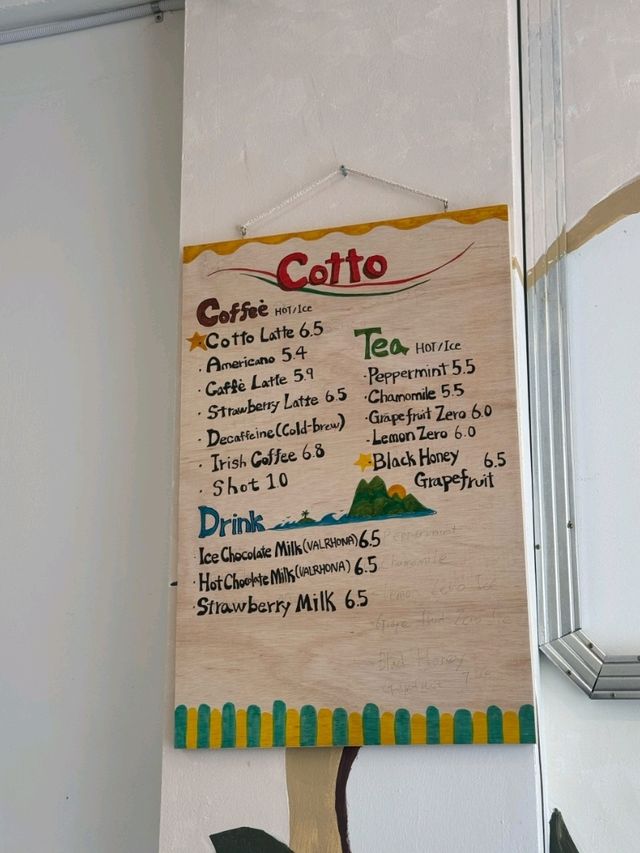 Cotto
Coffeè HOT/Ice
Cotto Latte 6.5
· Americano 5.4
· Caffè Latte 5.9
· Strawberry Latte 6.5
· Decaffeine (Cold-brew)
· Irish Coffee 6.8
· Shot 1.0
Tea HOT/Ice
· Peppermint 5.5
· Chamomile 5.5
· Grapefruit Zero 6.0
· Lemon Zero 6.0
· Black Honey 6.5
Grapefruit
Drink
· Ice Chocolate Milk (VALRHONA) 6.5
· Hot Chocolate Milk (VALRHONA) 6.5
· Strawberry Milk 6.5
Peppermint
Chamomile
Zero Ice
Honey